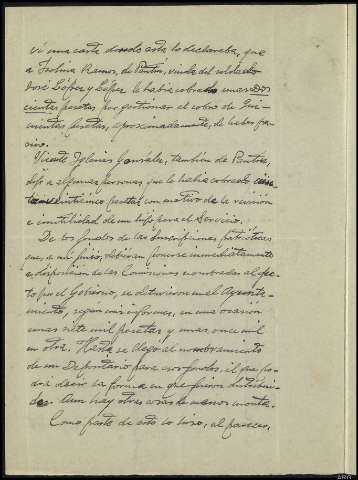 vi una carta donde esta lo declaraba, que
a Isolina Ramos, de Pantón, viuda del soldado
José López y López le había cobrado unas dos
cientas pesetas por gestionar el cobro de qui-
nientas pesetas, aproximadamente, de haber
Vicente Iglesias González, también de Pantón,
dijo a algunas personas que le había cobrado
veinticinco pesetas con motivo de la revisión
e inutilidad de un hijo para el Servicio.
De los fondos de las Suscripciones patrióticas
que, a mi juicio, debieran ponerse inmediatamente
a disposición de las Comisiones nombradas al efec-
to por el Gobierno, se detuvieron en el Ayunta-
miento, según mis informes, en una ocasión
unas siete mil pesetas y unas once mil
en otra. Hasta se llegó al nombramiento
de un Depositario para esos fondos, el que po-
drá decir la forma en que fueron distribui-
dos. Aun hay otras cosas de menos monta.
Como parte de esto se hizo, al parecer,
ARG